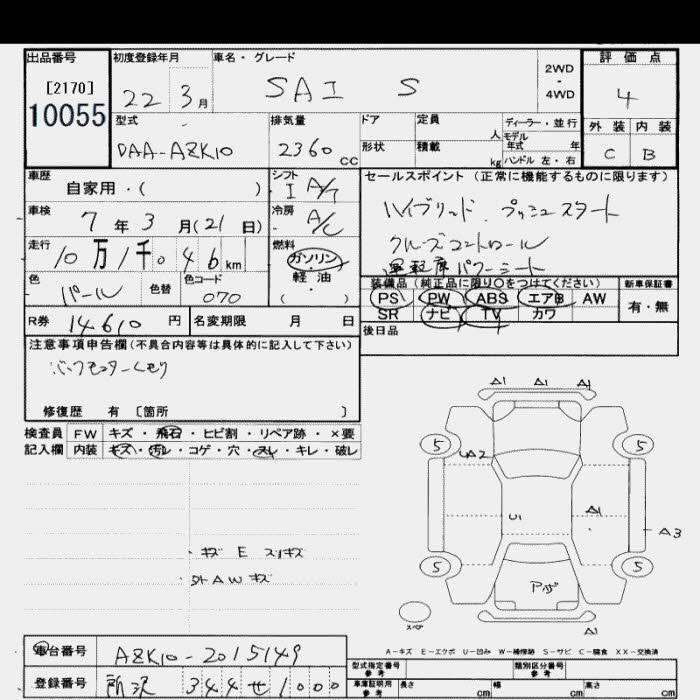 出品番号
[2170]
10055
初度登録年月
22 3月
車名・グレード
SAI S
2WD
・
4WD
評価点
4
外装 内装
C B
型式
DAA-AZK10
排気量
2360 CC
ドア
形状
定員 人
積載 kg
ディーラー・並行
モデル年式 年
ハンドル 左・右
車歴
自家用・( )
シフト
I A/T
車検
7年3月(21日)
冷房
A/C
走行
10万1千046km
燃料
ガソリン
・
軽油
( )
色
パール
色替
色コード
070
セールスポイント(正常に機能するものに限ります)
ハイブリッド、プッシュスタート
クルーズコントロール
運転席パワーシート
装備品(純正品に限り○をつけてください)
PS PW ABS エアB AW
SR ナビ TV カワ
新車保証書
有・無
後日品
R券 14610円
名変期限 月 日
注意事項申告欄(不具合内容等は具体的に記入して下さい)
バックモニタークモリ
修復歴 有 [箇所 ]
検査員 FW キズ・飛石・ヒビ割・リペア跡・×要
記入欄 内装 キズ・汚レ・コゲ・穴・スレ・キレ・破レ
・キズ E スリキズ
・外AWキズ
A1 A1 A1
5 5
UA2
U1 A1
A3
5 5
Pボ
スペア
A1
A-キズ E-エクボ U-凹み W-補修跡 S-サビ C-腐食 XX-交換済
車台番号 AZK10-2015149
登録番号 所沢 344 せ 1000
型式指定番号
参考
類別区分番号
参考
車庫証明用
参考
長さ cm 幅 cm 高さ cm